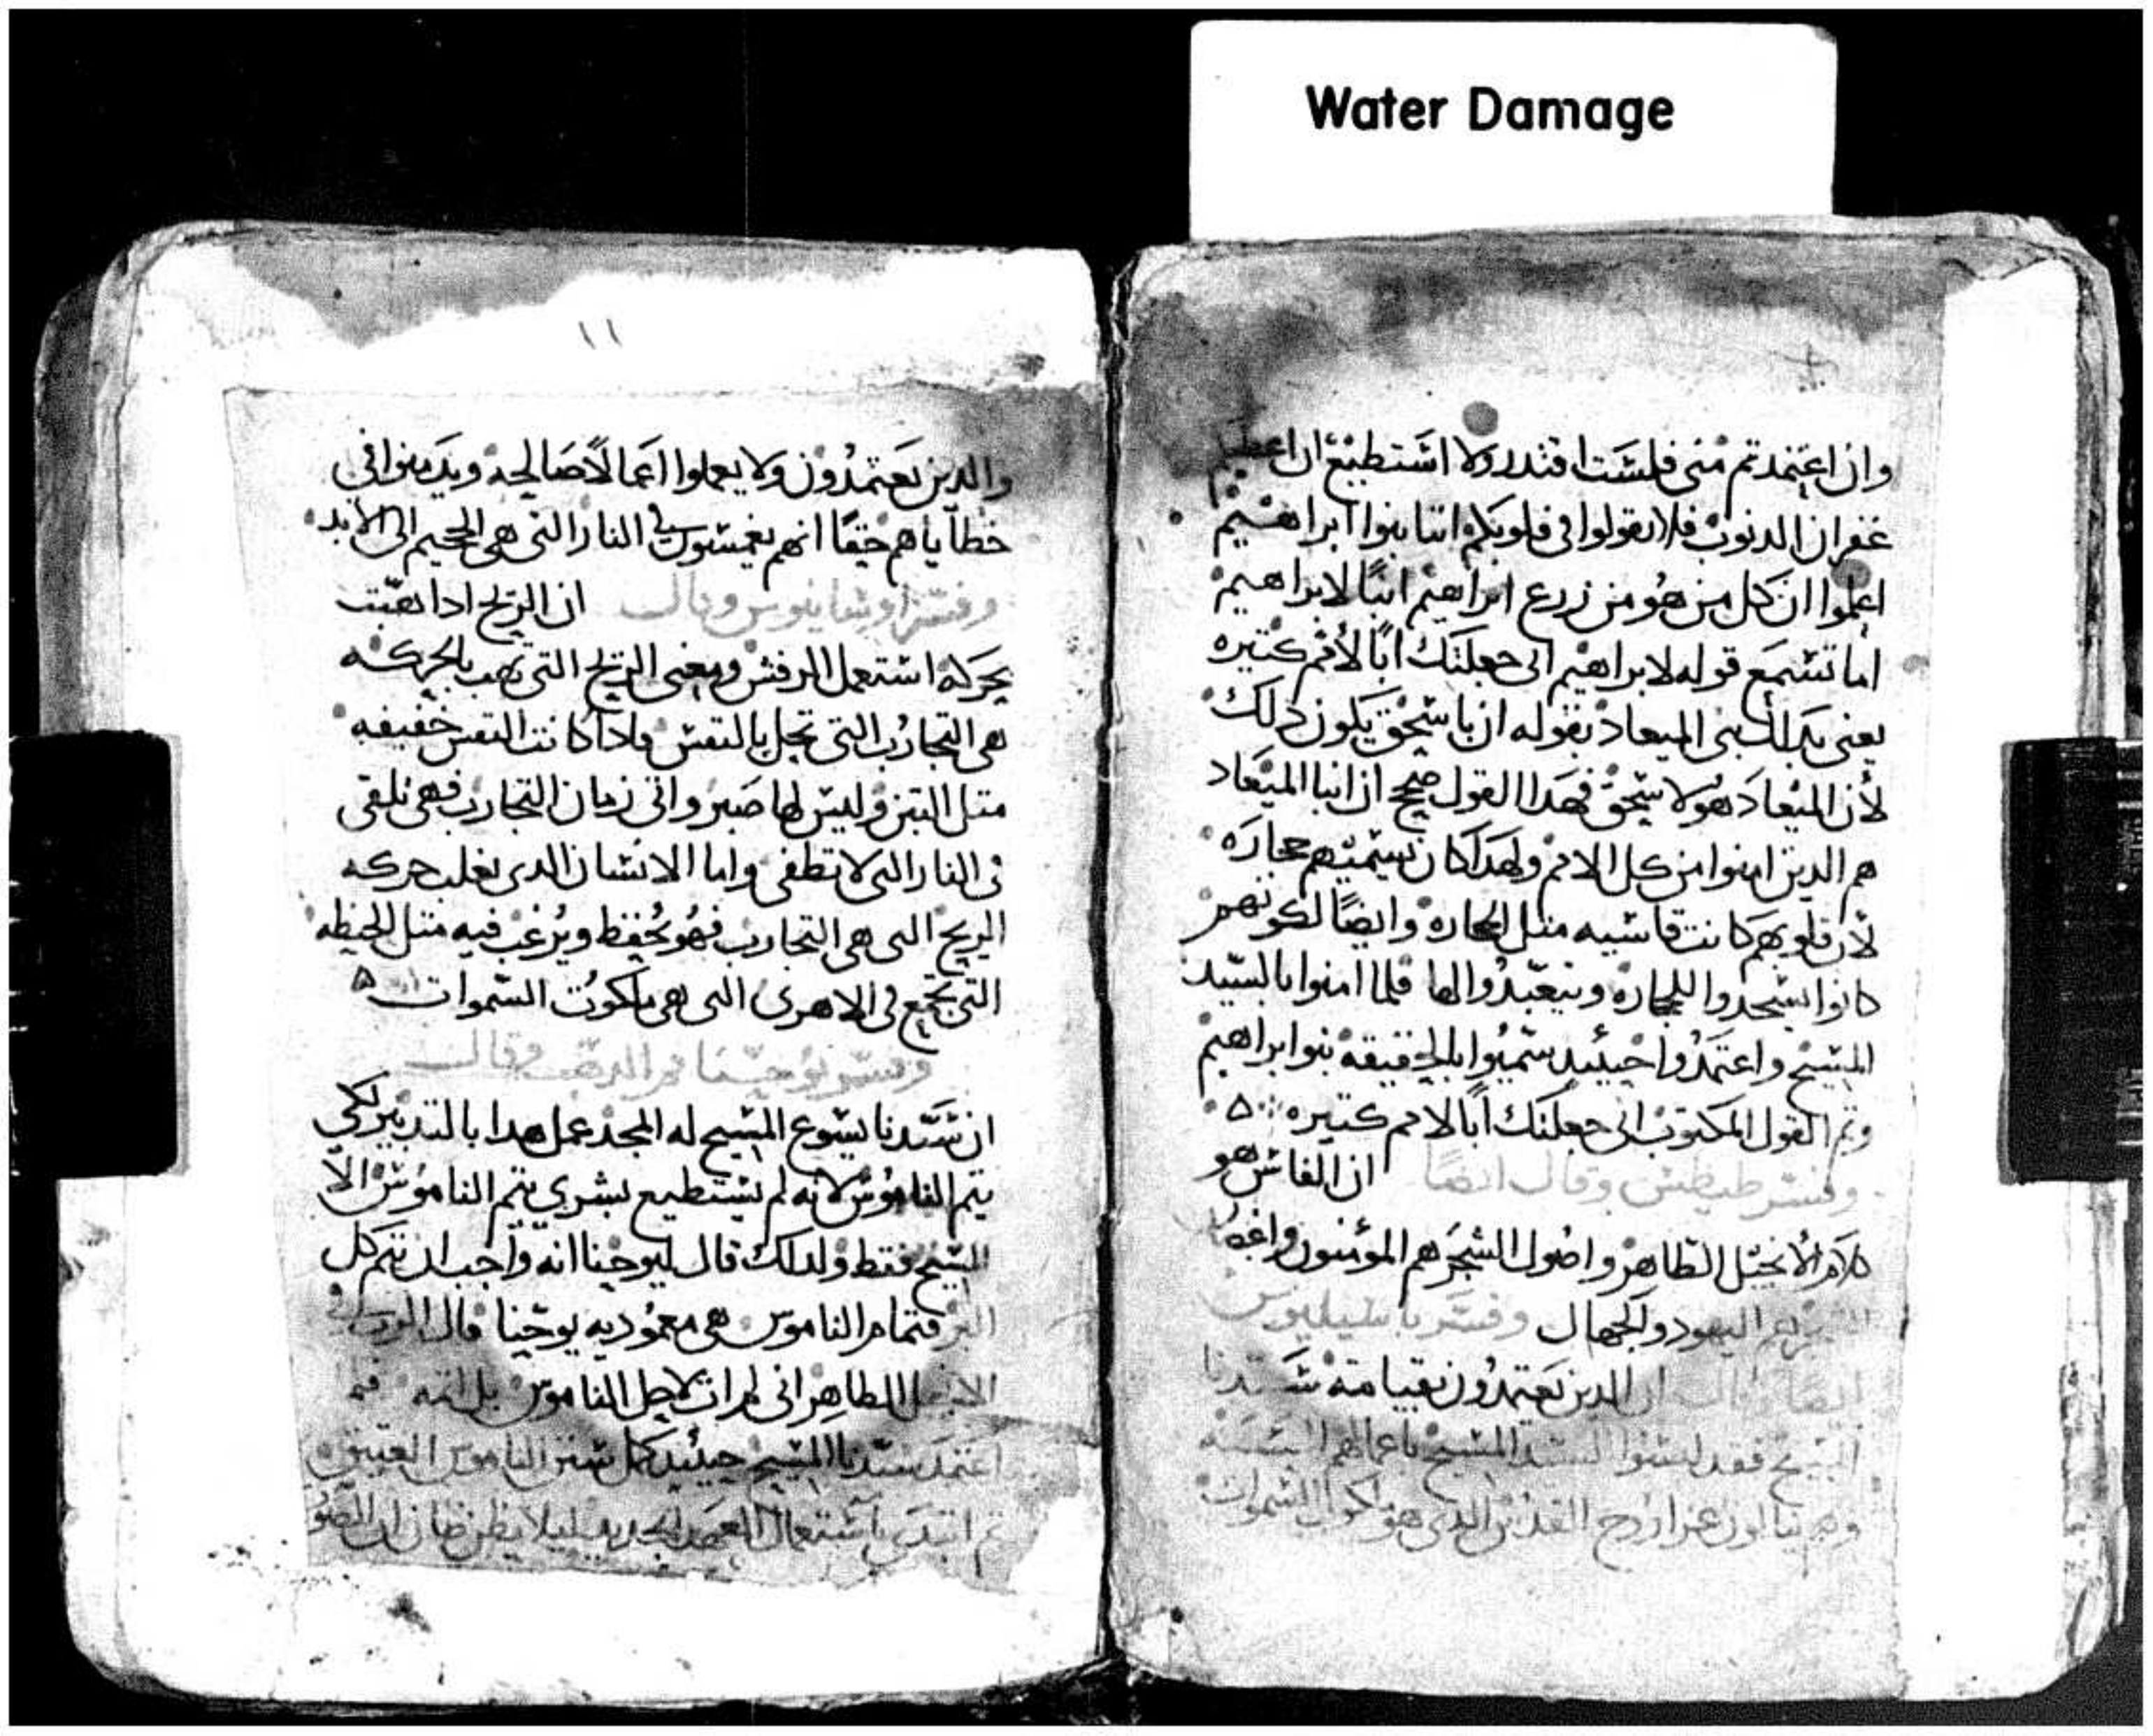 Water Damage
وان اعتمدتم مني فلست اقتدر ولا استطيع ان اعطيكم
غفران الدنوب فلا تقولوا في قلوبكم اننا بنوا ابراهيم
اعلموا ان كل من هو من زرع ابراهيم ابنًا لابراهيم
أما تسمع قوله لابراهيم اني جعلتك ابًا لأمم كتيره
يعني بدلك بني الميعاد بقوله ان باسحق يكون دلك
لأن الميعاد هو لاسحق فهدا القول صحيح ان ابنا الميعاد
هم الدين امنوا من كل الامم ولهدا كان يسميهم حجاره
لان قلوبهم كانت قاسيه متل الحجاره وايضًا لكونهم
كانوا يسجدوا للحجاره ويتعبدوا لها فلما امنوا بالسيد
المسيح واعتمدوا حينيد سميوا بالحقيقه بنوا ابراهيم
وتم القول المكتوب اني جعلتك ابًا لامم كتيره
وفسر طيطس وقال ايضًا ان الفاس هو
كلام الأنجيل الطاهر واصول الشجر هم المؤمنون
هم اليهود والجهال وفسر باسيليوس
ايضًا وقال ان الدين يعتمدون بقيامة سيدنا
المسيح فقد لبسوا السيد المسيح باعمالهم الحسنه
القدس الدي هو ملكوت السموات
١١
والدين يعتمدون ولا يعملوا اعمالًا صالحه ويدمنوا في
خطاياهم حقًا انهم يغمسون في النار التي هي الجحيم الى الابد
وفسر اوسابيوس وقال ان الريح ادا هبت
بحركة استعمل الرفش ومعني الريح التي تهب بالحركه
هي التجارب التي تحل بالنفس فادا كانت النفس خفيفه
متل التبن وليس لها صبر واتي زمان التجارب فهي تلقي
في النار التي لا تطفي واما الانسان الدي يغلب حركه
الريح التي هي التجارب فهو يحفظ ويرغب فيه متل الحنطه
التي تجمع في الاهري التي هي ملكوت السموات
وفسر يوحنا فم الدهب وقال
ان سيدنا يسوع المسيح له المجد عمل هدا بالتدبير لكي
يتم الناموس لانه لم يستطيع بشري يتم الناموس الا
المسيح فقط ولدلك قال ليوحنا انه واجب ان نتم كل
البر فتمام الناموس هي معموديه يوحنا قال الرب في
الانجيل الطاهر اني لم ات لاحل الناموس بل اتمه فلما
اعتمد سيدنا المسيح حينيد كمل سنن الناموس العتيق
تم ابتدي باستعمال العهد الجديد ليلا يظن ظان ان